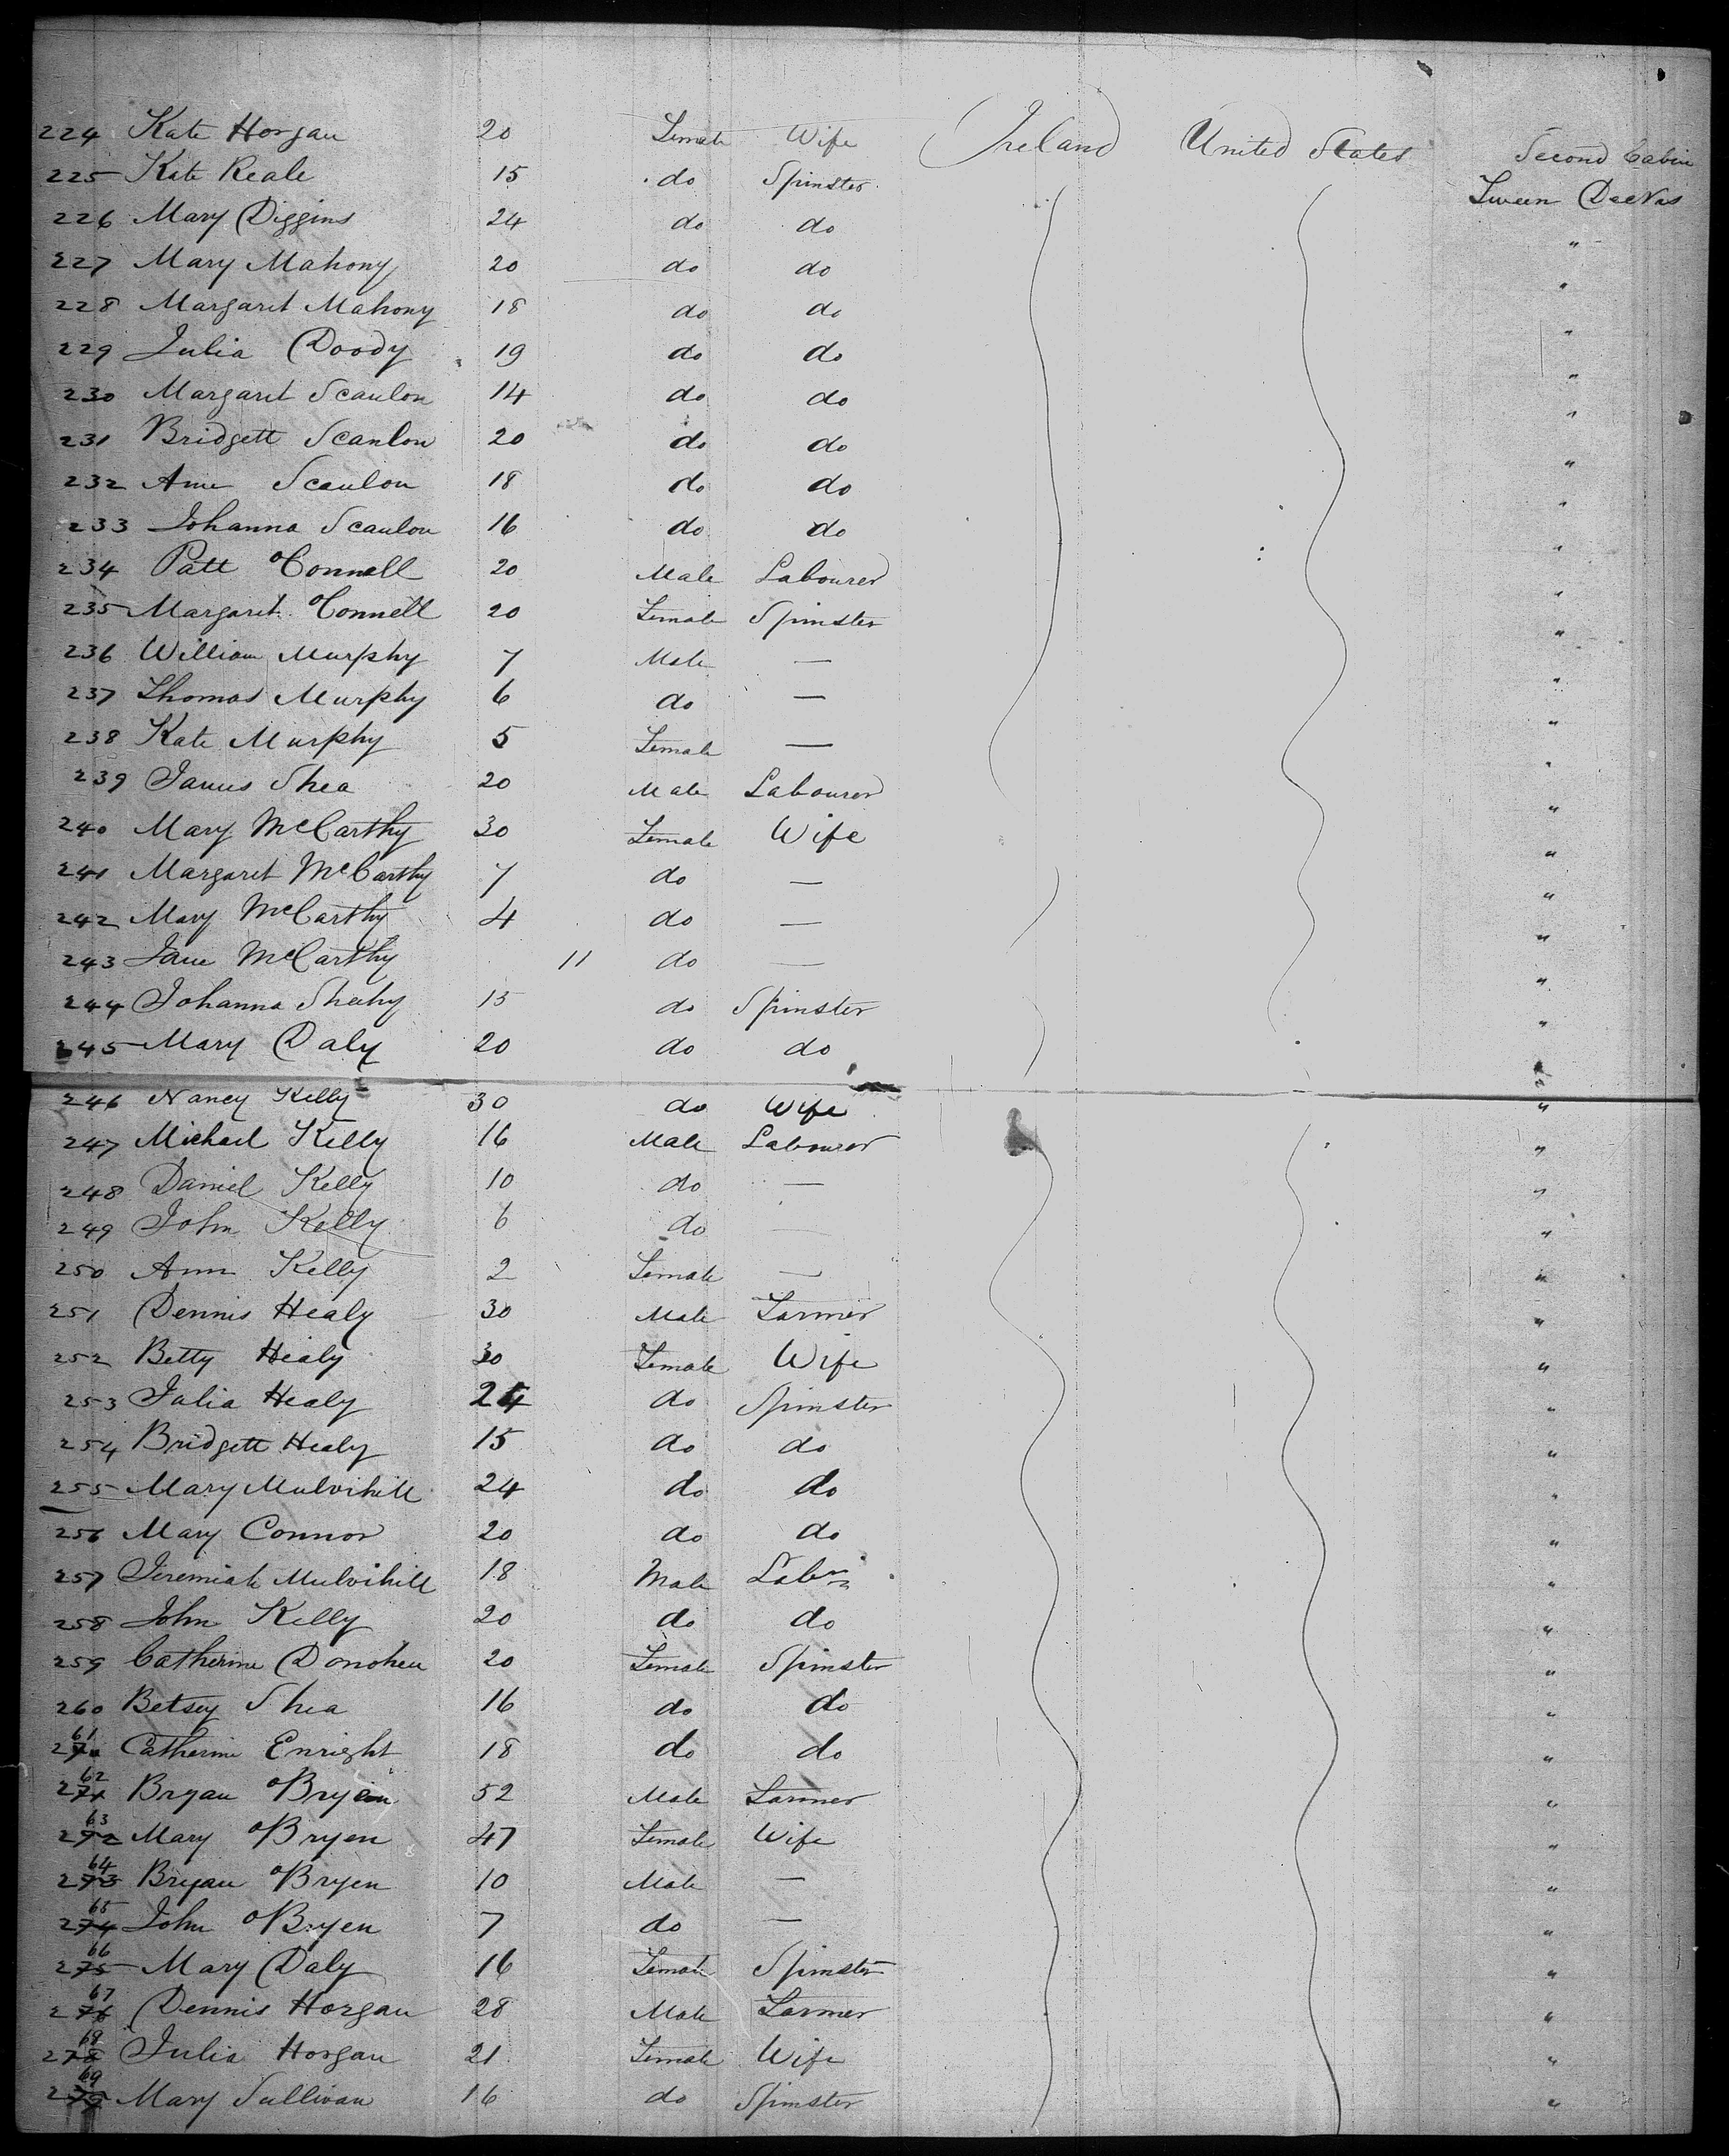 224 Kate Horgan 20 Female Wife Ireland United States Second Cabin
225 Kate Reale 15 do Spinster Tween Decks
226 Mary Diggins 24 do do "
227 Mary Mahony 20 do do "
228 Margaret Mahony 18 do do "
229 Julia Doody 19 do do "
230 Margaret Scanlon 14 do do "
231 Bridgett Scanlon 20 do do "
232 Ann Scanlon 18 do do "
233 Johanna Scanlon 16 do do "
234 Patt OConnell 20 Male Labourer "
235 Margaret OConnell 20 Female Spinster "
236 William Murphy 7 Male — "
237 Thomas Murphy 6 do — "
238 Kate Murphy 5 Female — "
239 James Shea 20 Male Labourer "
240 Mary McCarthy 30 Female Wife "
241 Margaret McCarthy 7 do — "
242 Mary McCarthy 4 do — "
243 Jane McCarthy 11 do — "
244 Johanna Sheehy 15 do Spinster "
245 Mary Daly 20 do do "
246 Nancy Kelly 30 do Wife "
247 Michael Kelly 16 Male Labourer "
248 Daniel Kelly 10 do — "
249 John Kelly 6 do — "
250 Ann Kelly 2 Female — "
251 Dennis Healy 30 Male Farmer "
252 Betty Healy 30 Female Wife "
253 Julia Healy 24 do Spinster "
254 Bridgett Healy 15 do do "
255 Mary Mulvihill 24 do do "
256 Mary Connor 20 do do "
257 Jeremiah Mulvihill 18 Male Labr "
258 John Kelly 20 do do "
259 Catherine Donoheu 20 Female Spinster "
260 Betsey Shea 16 do do "
261 Catherine Enright 18 do do "
262 Bryan OBryen 52 Male Farmer "
263 Mary OBryen 47 Female Wife "
264 Bryan OBryen 10 Male — "
265 John OBryen 7 do — "
266 Mary Daly 16 Female Spinster "
267 Dennis Horgan 28 Male Farmer "
268 Julia Horgan 21 Female Wife "
269 Mary Sullivan 16 do Spinster "